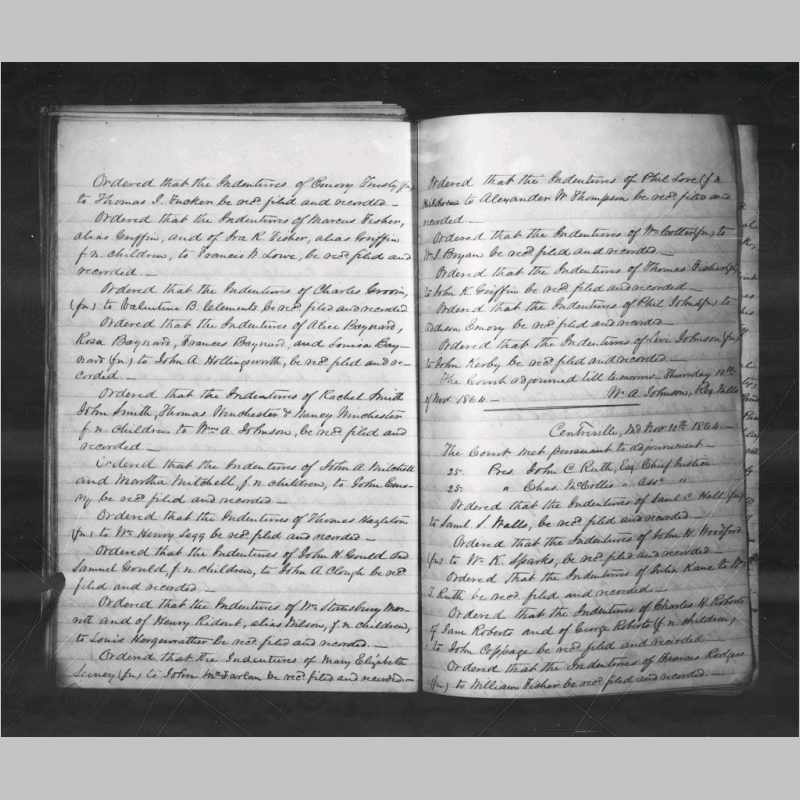 Ordered that the Indentures of Emory Trusty, fn,
to Thomas I. Tucker be recd filed and recorded —
Ordered that the Indentures of Marcus Fisher,
alias Griffin, and of Ira K. Fisher, alias Griffin
f.n. children, to Francis N. Lowe, be recd filed and
recorded —
Ordered that the Indentures of Charles Groom,
(fn) to Valentine B. Clements be recd filed and recorded
Ordered that the Indentures of Alice Baynard,
Rosa Baynard, Frances Baynard, and Louisa Bay-
nard (fn) to John A. Hollingsworth, be recd filed and re-
corded —
Ordered that the Indentures of Rachel Smith
John Smith, Thomas Winchester & Nancy Winchester
f.n. children to Wm A Johnson, be recd filed and
recorded —
Ordered that the Indentures of John A Mitchell
and Martha Mitchell, f.n. children, to John Emo-
ry be recd filed and recorded —
Ordered that the Indentures of Thomas Hazleton
(fn) to Wm Henry Legg be recd filed and recorded —
Ordered that the Indentures of John H Gould and
Samuel Gould, f.n. children, to John A Clough be recd
filed and recorded. —
Ordered that the Indentures of Wm
and of Henry alias Wilson, f.n. children,
to Louis Hergenratter be recd filed and recorded. —
Ordered that the Indentures of Mary Elizabeth
(fn) to John McFarlan be recd filed and recorded —
Ordered that the Indentures of Phil f n
to Alexander W. Thompson be recd filed and
recorded —
Ordered that the Indentures of Wm (fn) to
Wm J Bryan be recd filed and recorded —
Ordered that the Indentures of Thomas Fisher (fn)
to John K. Griffin be recd filed and recorded —
Ordered that the Indentures of Phil Johns (fn) to
Addison Emory be recd filed and recorded
Ordered that the Indentures of Levi Johnson (fn)
to John Kerby be recd filed and recorded —
The Court adjourned till to morrow Thursday 10th
of Nov 1864 —
Wm A. Johnson, Reg Wills
Centreville, Md Nov 10th 1864 —
The Court met persuant to adjournment —
25. Pres John C. Ruth, Esq Chief Justice
25. " Chas. McCollis " Asso "
Ordered that the Indentures of Saml C. Hall (fn)
to Saml S. Walls, be recd filed and recorded —
Ordered that the Indentures of John H. Woodford
(fn) to Wm K. Sparks, be recd filed and recorded —
Ordered that the Indentures of Julia Kane to Wm
T. Ruth be recd filed and recorded —
Ordered that the Indentures of Charles H. Roberts
of Jane Roberts and of George Roberts (f.n children)
to John Coppage be recd filed and recorded
Ordered that the Indentures of Frances Rodgers
(fn) to William Fisher be recd filed and recorded —